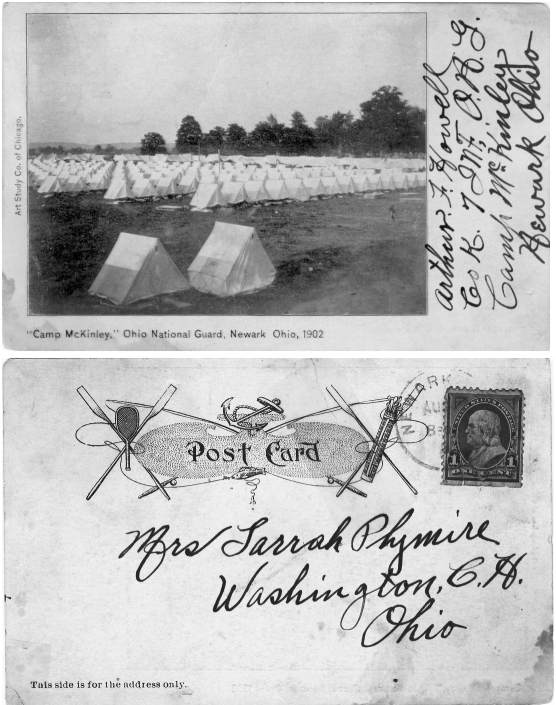 Art Study Co. of Chicago.
"Camp McKinley," Ohio National Guard, Newark Ohio, 1902
Arthur F Howell
Co K 7 Inft O.N.G.
Camp McKinley
Newark Ohio
Post Card
NEWARK
AUG
1
1
ONE CENT
Mrs Sarrah Plymire
Washington, C.H.
Ohio
This side is for the address only.